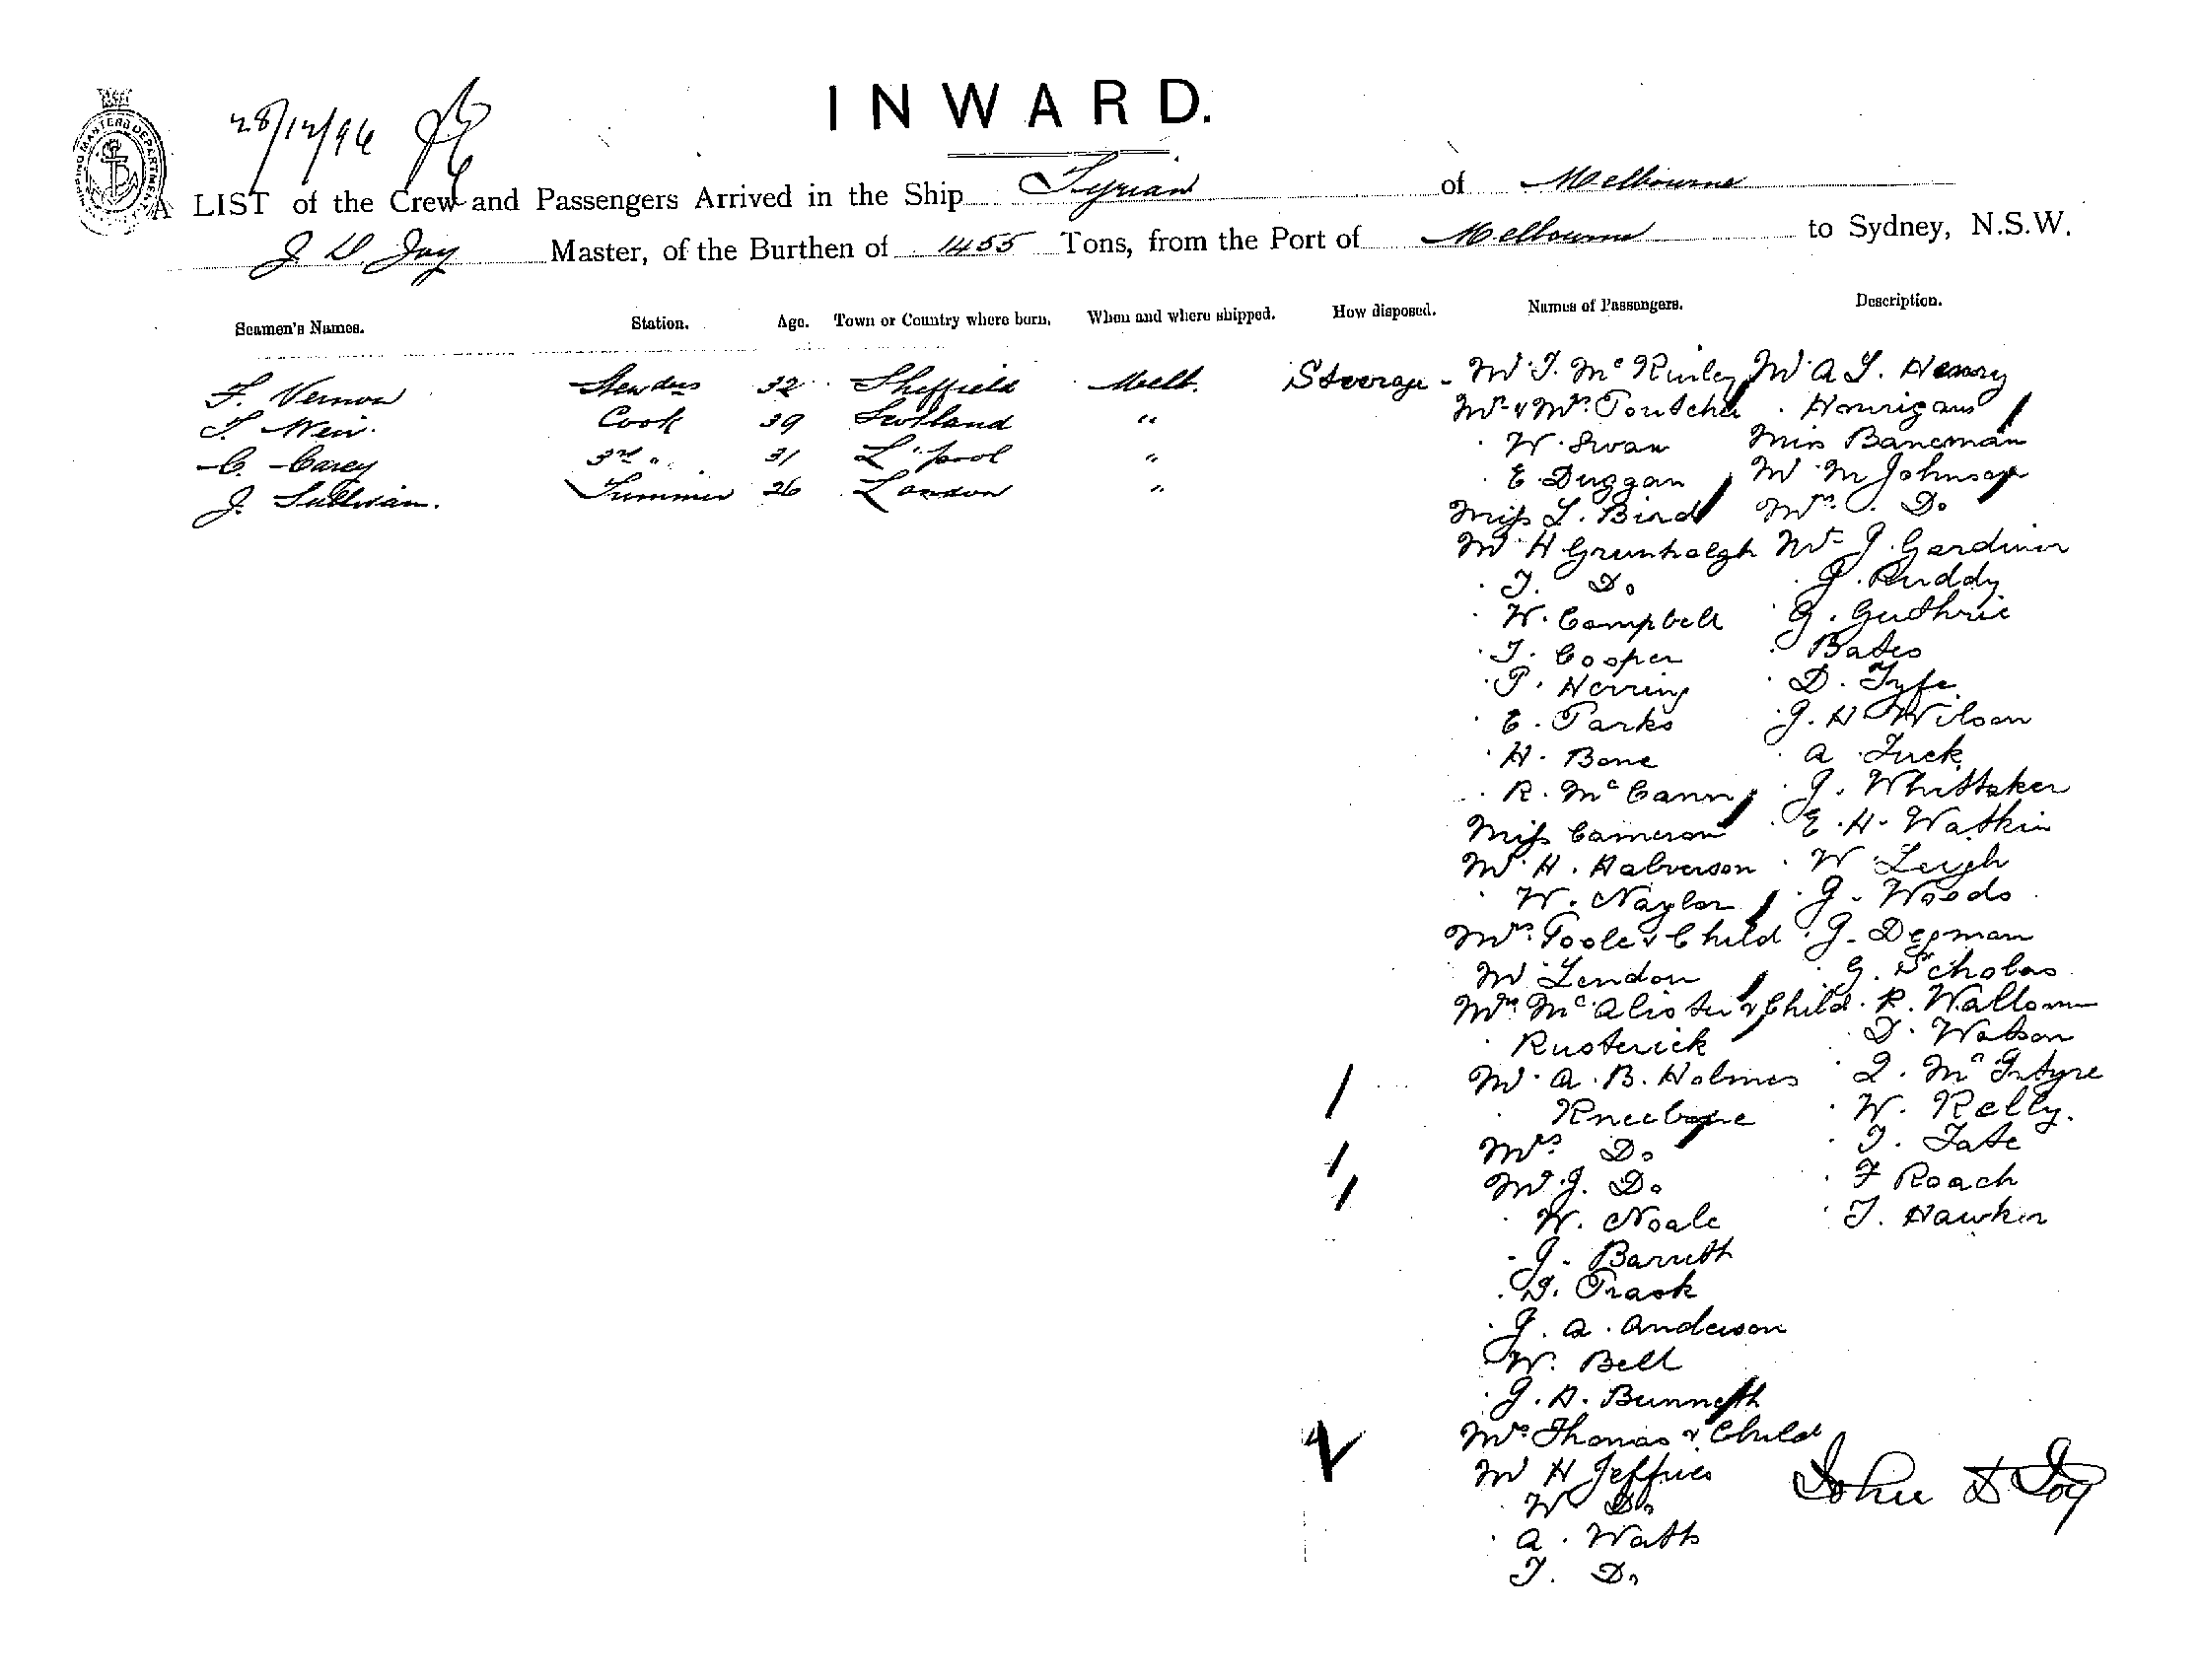 INWARD.
28/12/96
SHIPPING MASTERS DEPARTMENT
A LIST of the Crew and Passengers Arrived in the Ship Tyrian of Melbourne
J D. Joy Master, of the Burthen of 1455 Tons, from the Port of Melbourne to Sydney, N.S.W.
Seamen's Names. Station. Age. Town or Country where born. When and where shipped. How disposed. Names of Passengers. Description.
F. Vernon 32 Sheffield Melb.
T. Weir. Cook 39 Scotland "
C. Carey 3rd " 31 L'pool "
J. Sullivan. Trimmer 26 London "
Steerage -
Mr T. McKinley
Mr & Mrs Toutcher
W. Swan
E. Duggan
Miss L. Bird
Mr H Grunhalgh
T. Do
W. Campbell
T. Cooper
P. Herring
E. Parks
H. Bone
R. McCann
Miss Cameron
Mr H. Halverson
W. Naylor
Mrs Toole & Child
Mr Lendon
Mrs McAlister & Child
Rusterick
Mr A. B. Holmes
Kneebone
Mrs Do
Mr J. Do
W. Noale
J. Barrett
Trask
J. A. Anderson
W. Bell
J. H. Bunnett
Mrs Thomas & Child
Mr H Jeffries
W Do
A. Watts
T. Do
Mr A. T. Henry
Hourigan
Miss Baneman
Mr M Johnson
Mrs Do
Mr J. Gardiner
J. Ruddy
G. Guthrie
Bates
D. Fyfe
J. H Wilson
A Tuck
J. Whittaker
E. H. Watkin
W Leigh
J. Woods
J. Degman
G. Scholes
R. Wallom
D. Watson
McIntyre
W. Kelly.
T. Tate
F Roach
T. Hawker
John D Joy